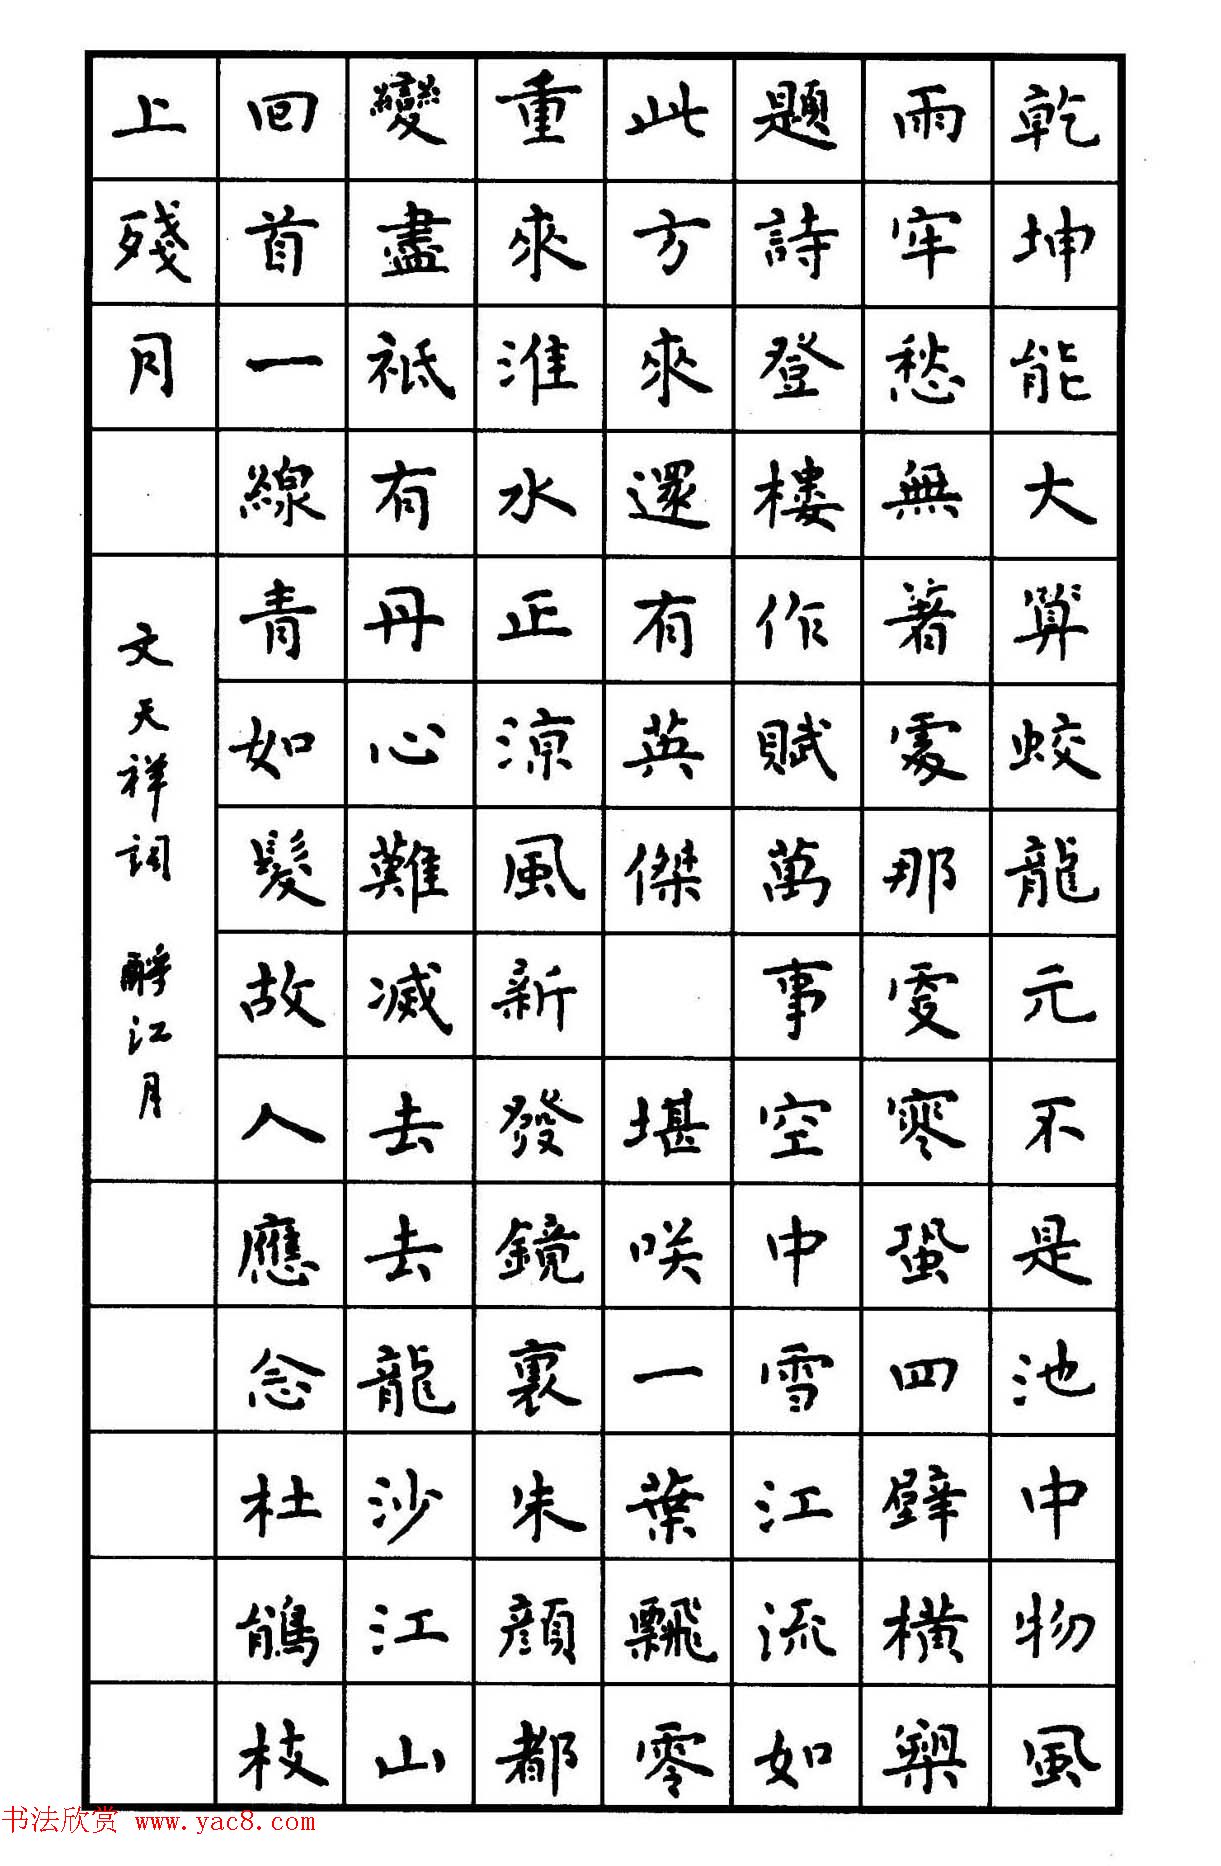 乾坤能大算蛟龍元不是池中物風
雨牢愁無著處那更寒蛩四壁橫槊
題詩登樓作賦萬事空中雪江流如
此方來還有英傑 堪咲一葉飄零
重來淮水正涼風新發鏡裏朱顏都
變盡祗有丹心難滅去去龍沙江山
回首一線青如髮故人應念杜鵑枝
上殘月
文天祥詞 酹江月
书法欣赏 www.yac8.com